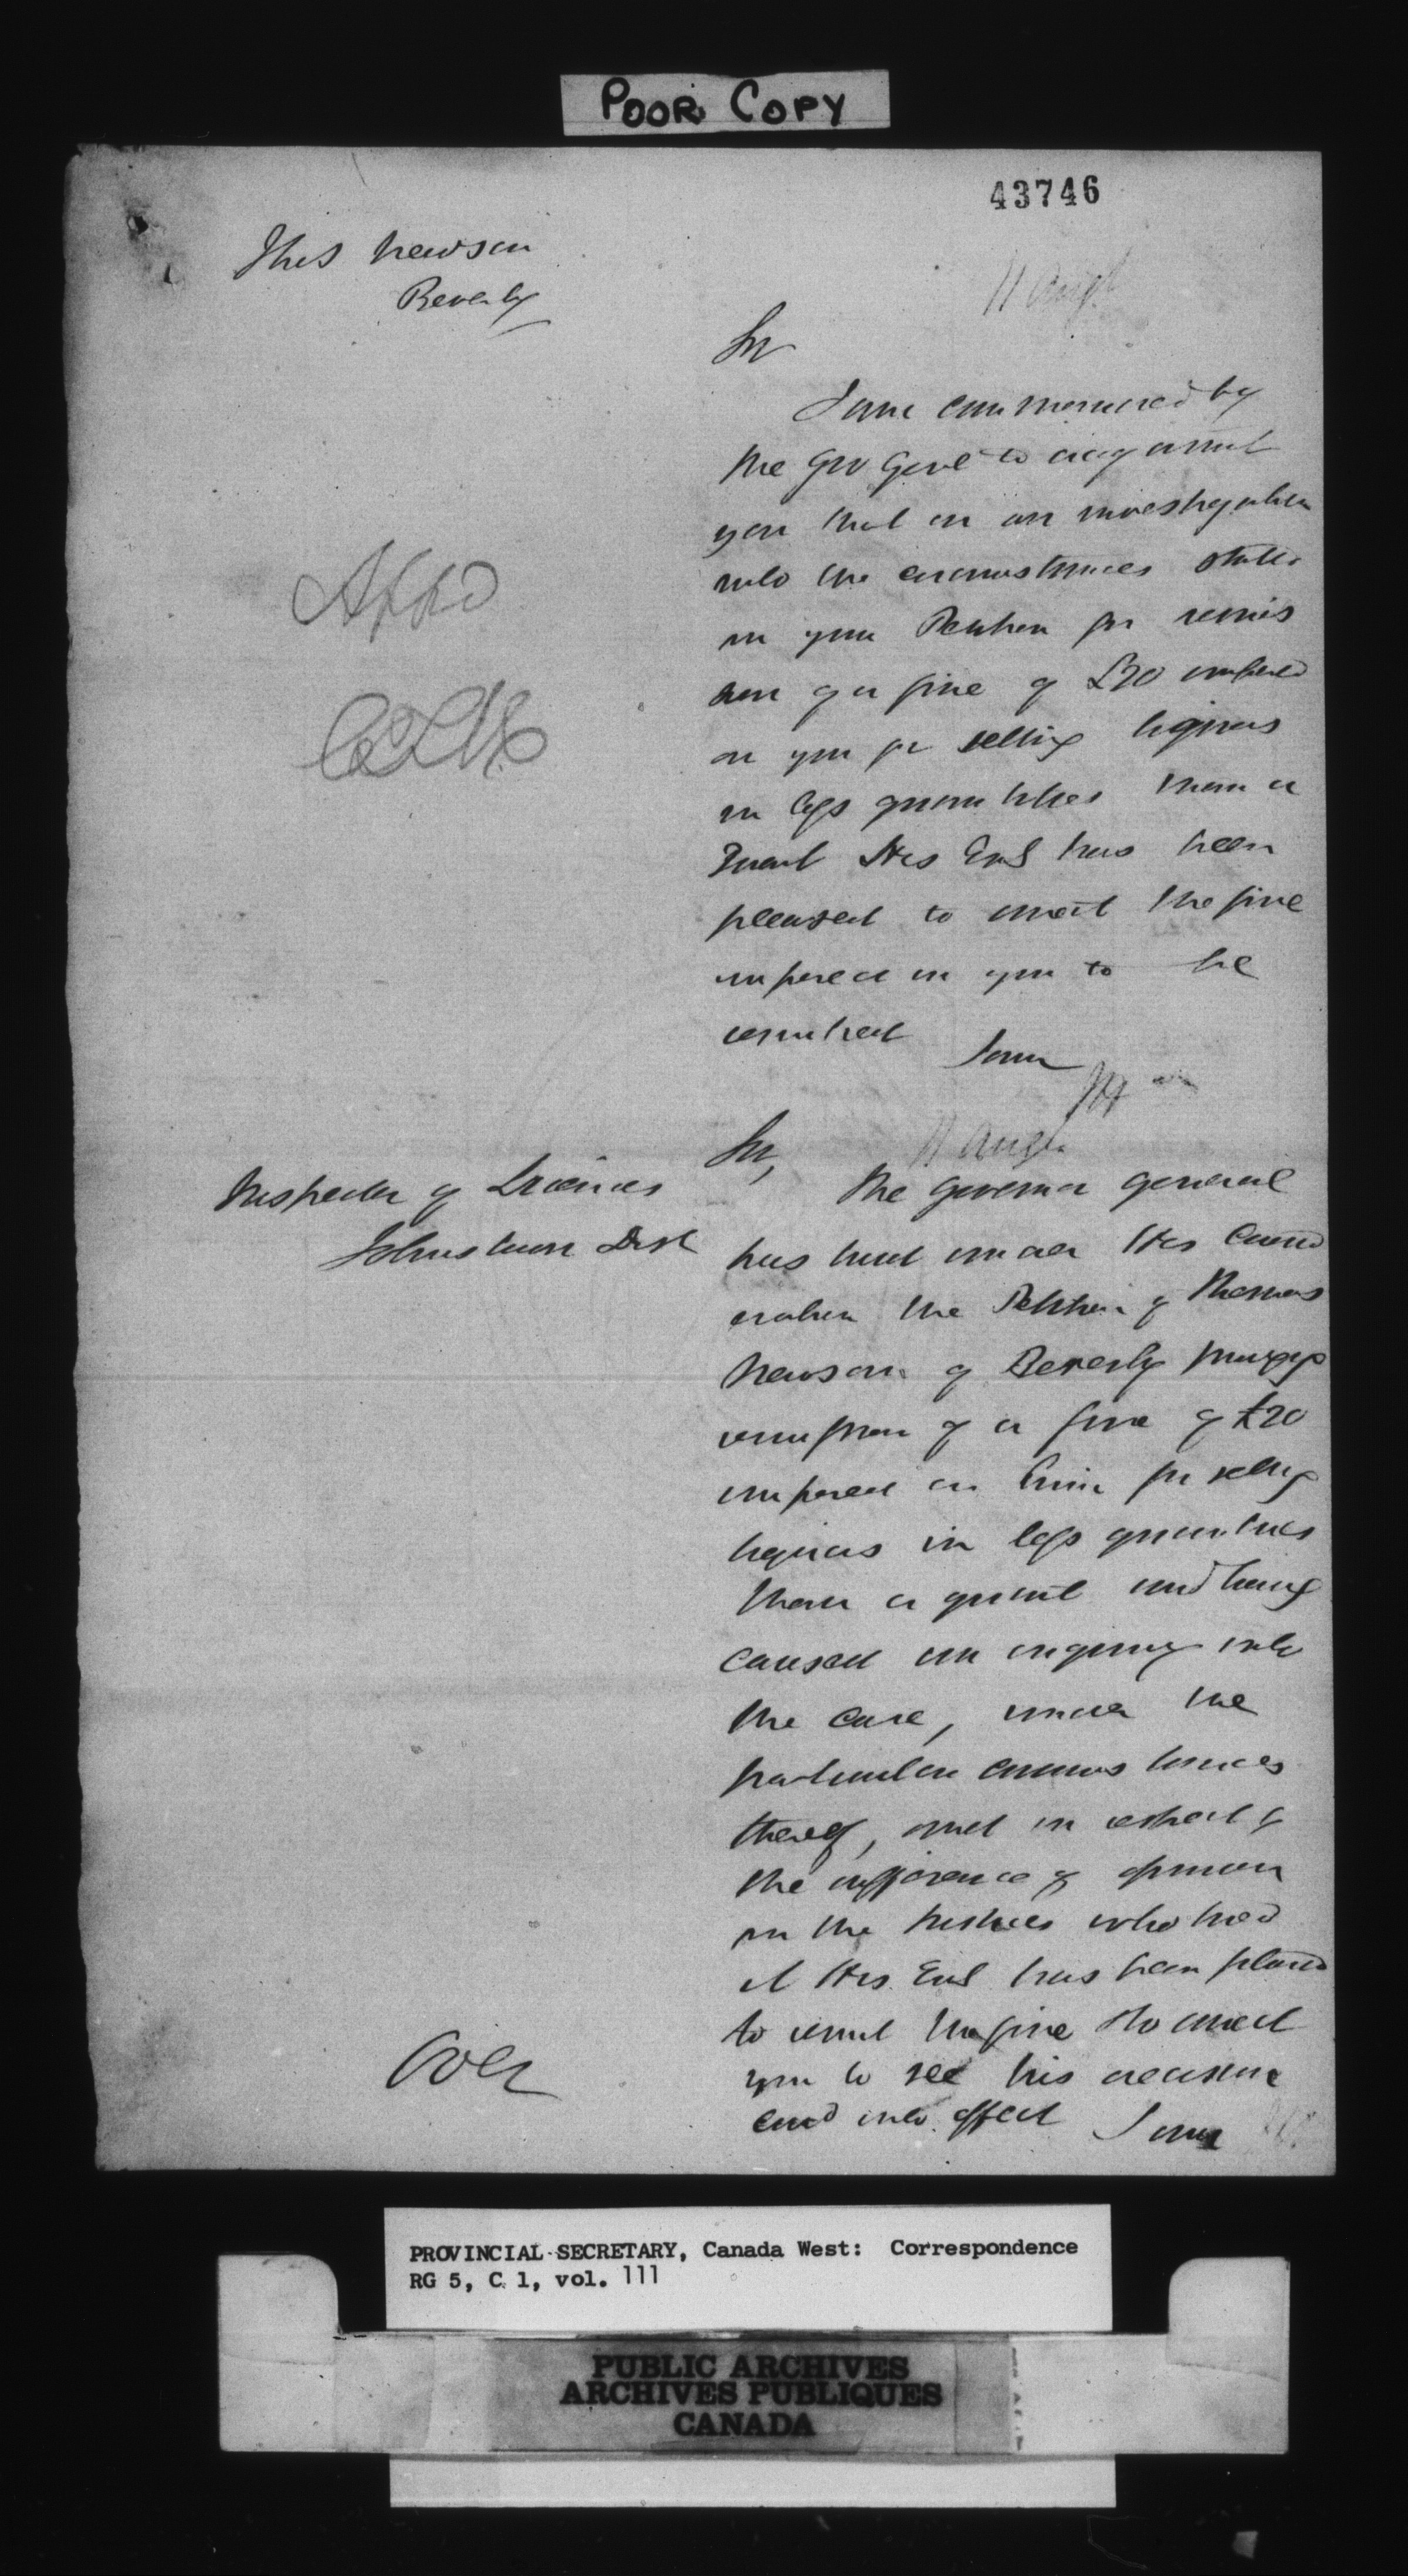 POOR COPY
43746
Thos Newson
Beverly
11 Augt
Sir
I am commanded by
the Gov Genl to acquaint
you that on an investigation
into the circumstances stated
in your Petition for remis
sion of a fine of £20 imposed
on you for selling liquors
in less quantities than a
Quart His Exc has been
pleased to direct the fine
imposed on you to be
remitted
I am
Appd
Sir,
11 Augt
Inspector of Licences
Johnstown Dist
The Governor General
has had under His Consid
eration the Petition of Thomas
Newson of Beverly praying
remission of a fine of £20
imposed on him for selling
liquors in less quantities
than a quart and having
caused an inquiry into
the case, under the
particular circumstances
thereof, and in respect of
the difference of opinion
in the Justices who tried
it His Exc has been pleased
to remit the fine & to direct
you to see his decision
card into effect I am
Over
PROVINCIAL SECRETARY, Canada West: Correspondence
RG 5, C 1, vol. 111
PUBLIC ARCHIVES
ARCHIVES PUBLIQUES
CANADA